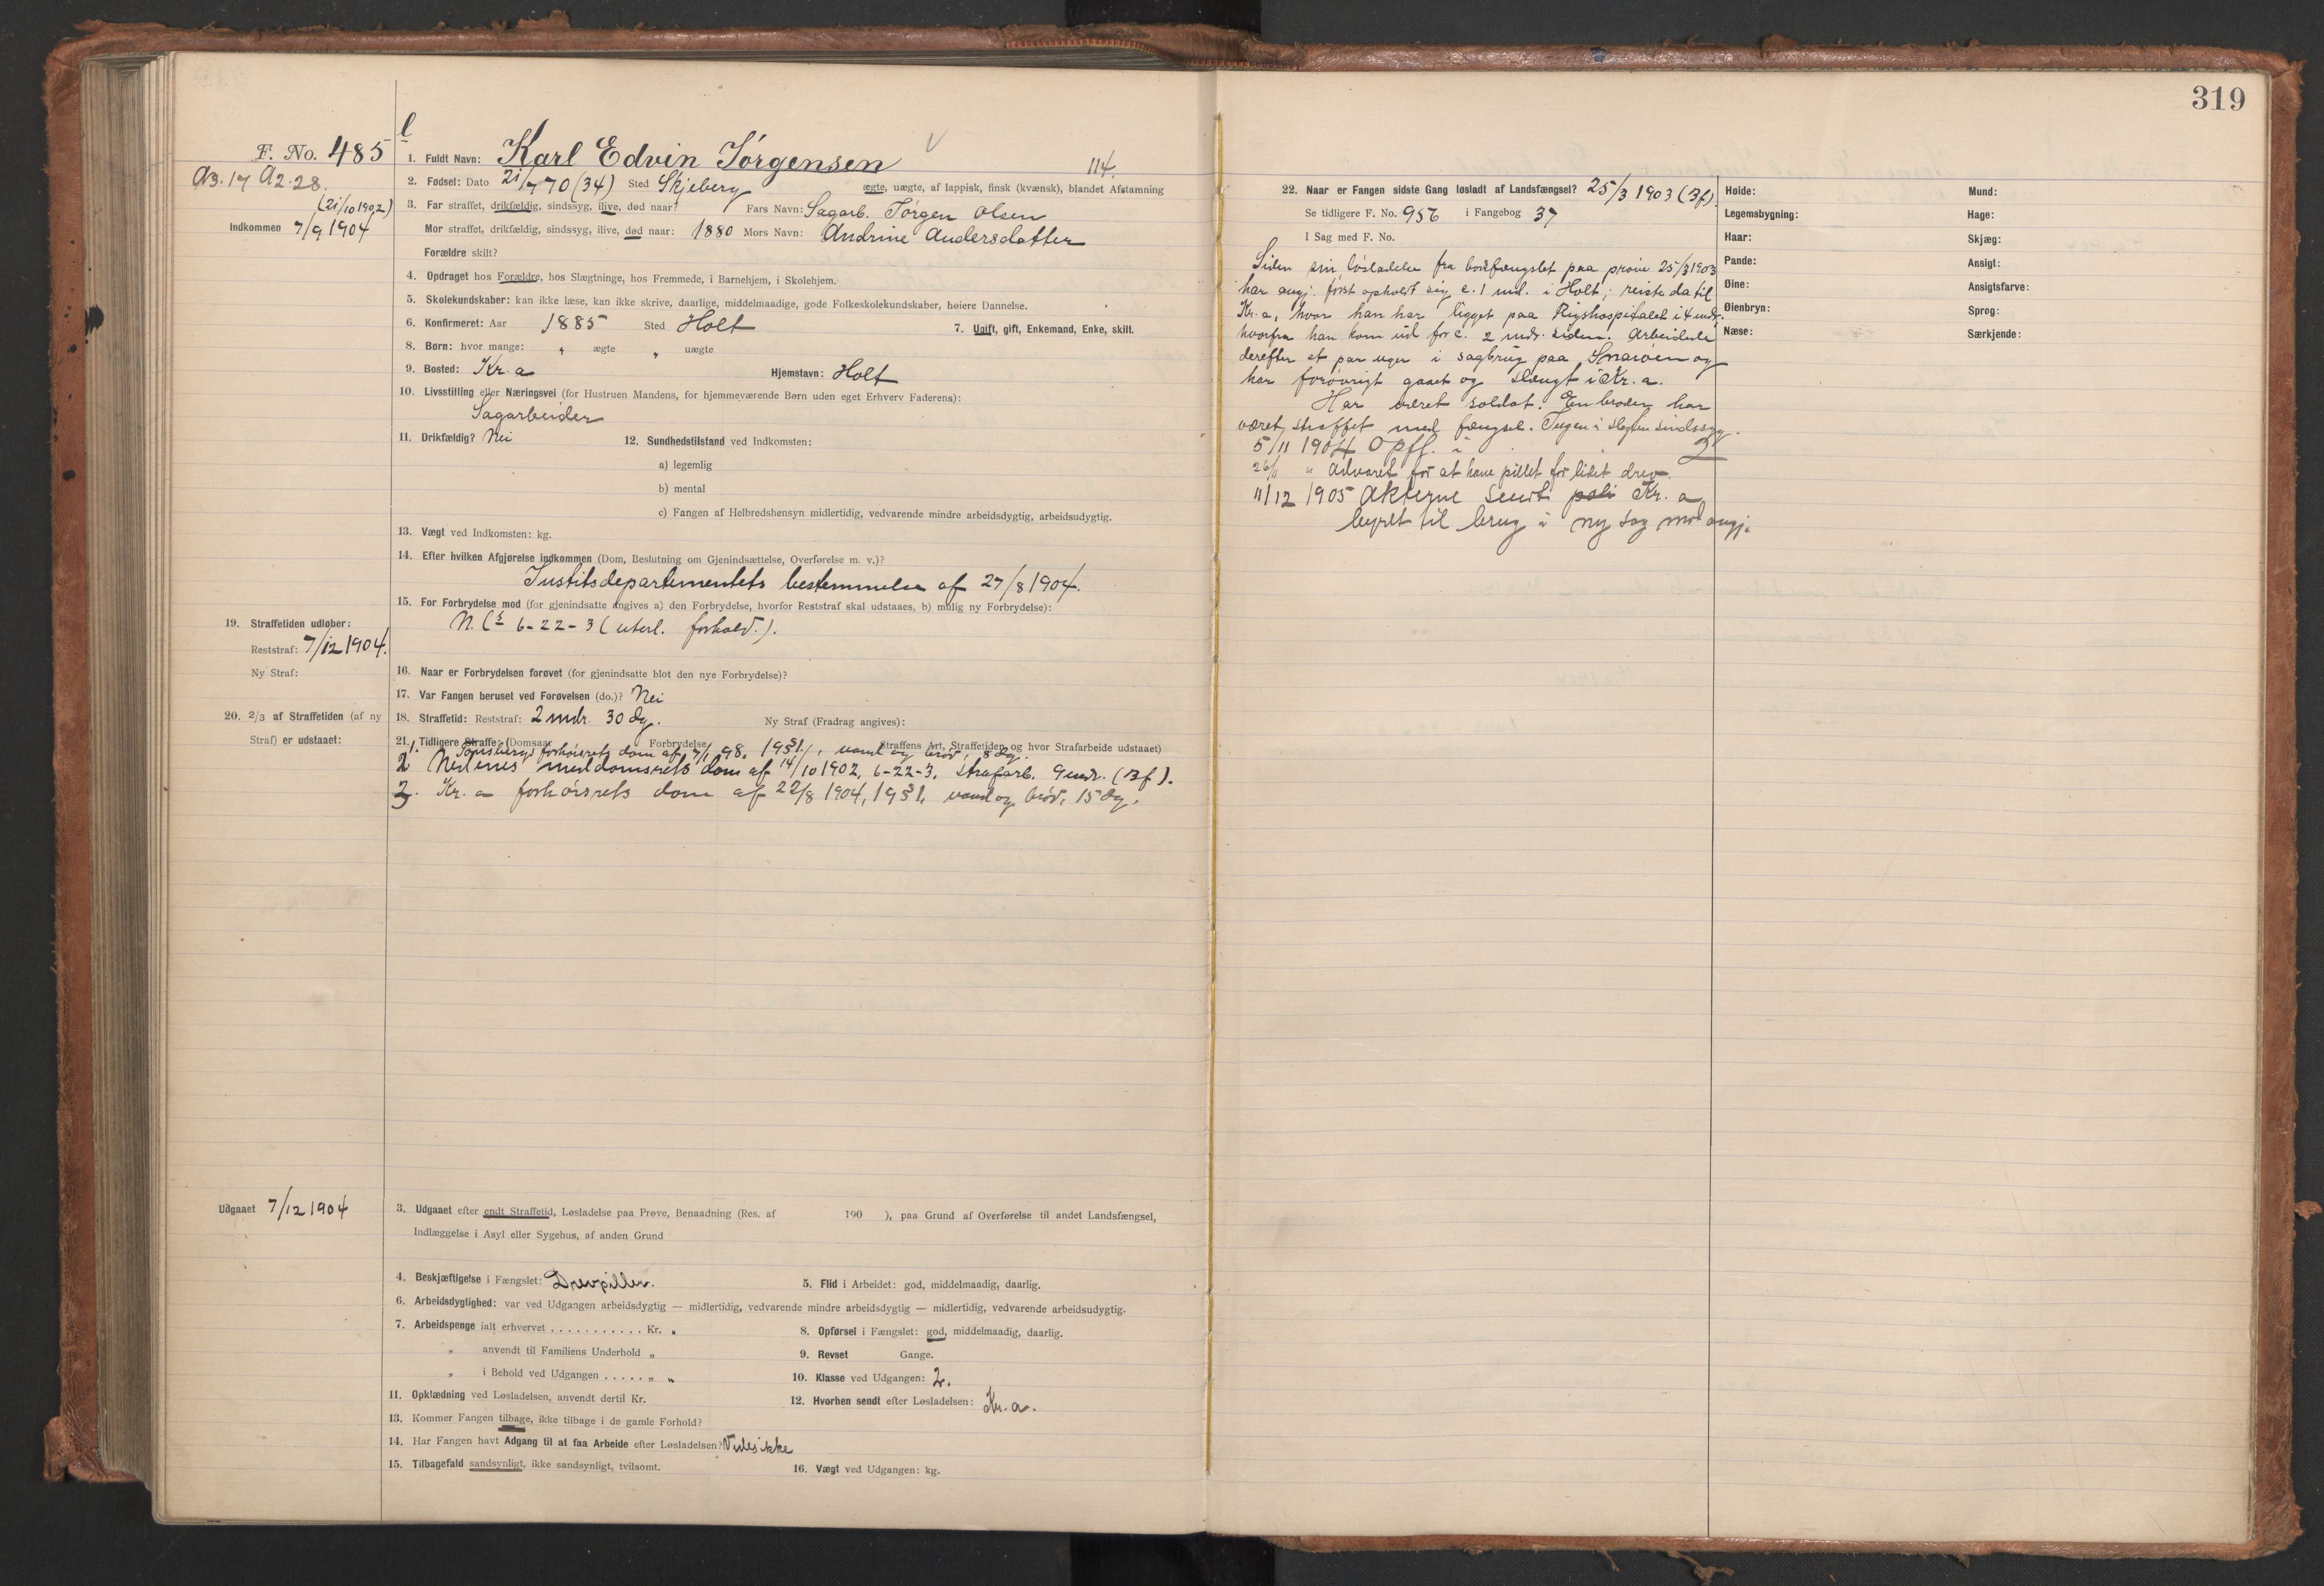 319
l
F. No. 485
A3.17 A2.28.
(21/10 1902)
Indkommen 7/9 1904
1. Fuldt Navn: Karl Edvin Jørgensen
114.
2. Fødsel: Dato 21/7 70 (34) Sted Skjeberg ægte, uægte, af lappisk, finsk (kvænsk), blandet Afstamning
3. Far straffet, drikfældig, sindssyg, ilive, død naar? Fars Navn: Sagarb. Jørgen Olsen
Mor straffet, drikfældig, sindssyg, ilive, død naar: 1880 Mors Navn: Andrine Andersdatter
Forældre skilt?
4. Opdraget hos Forældre, hos Slægtninge, hos Fremmede, i Barnehjem, i Skolehjem.
5. Skolekundskaber: kan ikke læse, kan ikke skrive, daarlige, middelmaadige, gode Folkeskolekundskaber, høiere Dannelse.
6. Konfirmeret: Aar 1885 Sted Holt 7. Ugift, gift, Enkemand, Enke, skilt.
8. Børn: hvor mange: " ægte " uægte
9. Bosted: Kr.a Hjemstavn: Holt
10. Livsstilling eller Næringsvei (for Hustruen Mandens, for hjemmeværende Børn uden eget Erhverv Faderens):
Sagarbeider
11. Drikfældig? Nei 12. Sundhedstilstand ved Indkomsten:
a) legemlig
b) mental
c) Fangen af Helbredshensyn midlertidig, vedvarende mindre arbeidsdygtig, arbeidsudygtig.
13. Vægt ved Indkomsten: kg.
14. Efter hvilken Afgjørelse indkommen (Dom, Beslutning om Gjenindsættelse, Overførelse m. v.)?
Justitsdepartementets bestemmelse af 27/8 1904.
15. For Forbrydelse mod (for gjenindsatte angives a) den Forbrydelse, hvorfor Reststraf skal udstaaes, b) mulig ny Forbrydelse):
6-22-3 (uterl. forhold.).
19. Straffetiden udløber:
Reststraf: 7/12 1904.
Ny Straf:
16. Naar er Forbrydelsen forøvet (for gjenindsatte blot den nye Forbrydelse)?
17. Var Fangen beruset ved Forøvelsen (do.)? Nei
20. 2/3 af Straffetiden (af ny
Straf) er udstaaet:
18. Straffetid: Reststraf: 2 mdr. 30 dg. Ny Straf (Fradrag angives):
21. Tidligere Straffe: (Domsaar Forbrydelse Straffens Art, Straffetiden og hvor Strafarbeide udstaaet)
1. Tønsbergs forhørsrets dom af 7/1 98, 19 § 1, vand og brød, 8 dg.
2 Nedenes meddomsrets dom af 14/10 1902, 6-22-3, strafarb. 9 mdr. (Bf).
3. Kr.a forhørsrets dom af 22/8 1904, 19 § 1, vand og brød, 15 dg.
Udgaaet 7/12 1904
3. Udgaaet efter endt Straffetid, Løsladelse paa Prøve, Benaadning (Res. af 190 ), paa Grund af Overførelse til andet Landsfængsel,
Indlæggelse i Asyl eller Sygehus, af anden Grund
4. Beskjæftigelse i Fængslet: Drevpiller. 5. Flid i Arbeidet: god, middelmaadig, daarlig.
6. Arbeidsdygtighed: var ved Udgangen arbeidsdygtig — midlertidig, vedvarende mindre arbeidsdygtig — midlertidig, vedvarende arbeidsudygtig.
7. Arbeidspenge ialt erhvervet . . . . . . . . . . . Kr. "
8. Opførsel i Fængslet: god, middelmaadig, daarlig.
" anvendt til Familiens Underhold "
9. Revset Gange.
" i Behold ved Udgangen . . . . . " "
10. Klasse ved Udgangen: 2.
11. Opklædning ved Løsladelsen, anvendt dertil Kr.
12. Hvorhen sendt efter Løsladelsen: Kr.a.
13. Kommer Fangen tilbage, ikke tilbage i de gamle Forhold?
14. Har Fangen havt Adgang til at faa Arbeide efter Løsladelsen? Vides ikke
15. Tilbagefald sandsynligt, ikke sandsynligt, tvilsomt. 16. Vægt ved Udgangen: kg.
22. Naar er Fangen sidste Gang løsladt af Landsfængsel? 25/3 1903 (Bf).
Se tidligere F. No. 956 i Fangebog 37
I Sag med F. No.
Siden sin løsladelse fra bodsfængslet paa prøve 25/3 1903
har angj. først opholdt sig c. 1 md. i Holt; reiste da til
Kr.a, hvor han har ligget paa Rigshospitalet i 4 mdr.
hvorfra han kom ud for c. 2 mdr. siden. Arbeidede
derefter et par uger i sagbrug paa Snarøen og
har forøvrigt gaaet og slængt i Kr.a.
Har været soldat. En broder har
været straffet med fængsel. Ingen i slegten sindssyg.
5/11 1904 Opfl. i 2
26/11 " Advaret for at have pillet for lidet drev.
11/12 1905 Akterne sendt Kr.a
byret til brug i ny sag mod angj.
Høide:
Legemsbygning:
Haar:
Pande:
Øine:
Øienbryn:
Næse:
Mund:
Hage:
Skjæg:
Ansigt:
Ansigtsfarve:
Sprog:
Særkjende: